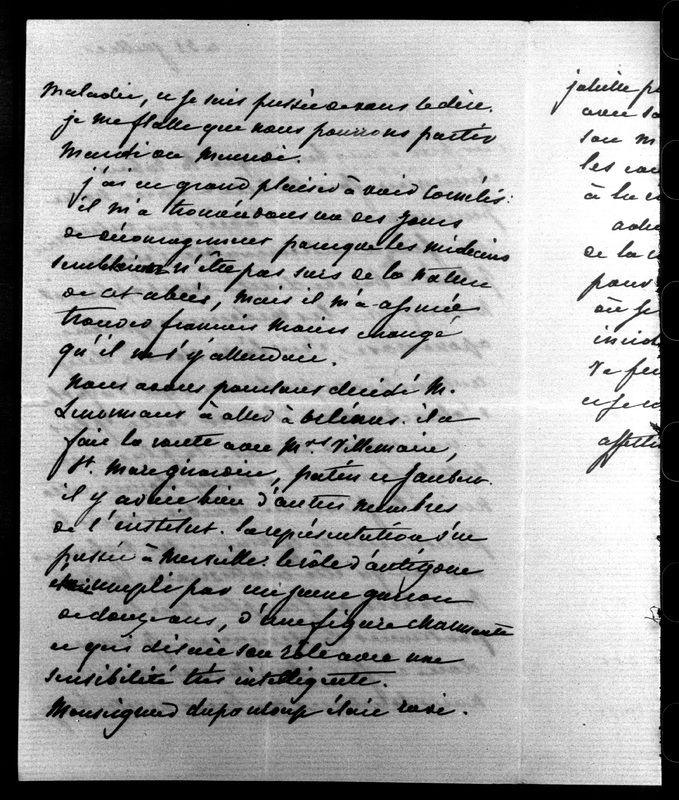 maladie, et je suis pressée de vous le dire.
je me flatte que nous pourrons partir
mardi ou mercredi.
j'ai eu grand plaisir à voir Cornélis:
il m'a trouvée dans un des jours
de découragement parceque les médecins
semblaient n'être pas surs de la nature
de cet abcès, mais il m'a assurée
trouver françois moins changé
qu'il ne s'y attendait.
nous avons pourtant décidé M.
Lenormant à aller à orléans. il a
fait la route avec Mrs Villemain,
St. Marc girardin, patin et
il y avait bien d'autres membres
de l'institut. la représentation s'est
passée à merveille: le rôle d'antigone
était rempli par un jeune garçon
de douze ans, d'une figure charmante
et qui disait son rôle avec une
sensibilité très intelligente.
Monseigneur dupanloup était ravi.
juliette
avec
son m
les
à la
de la
pour
où je
et je